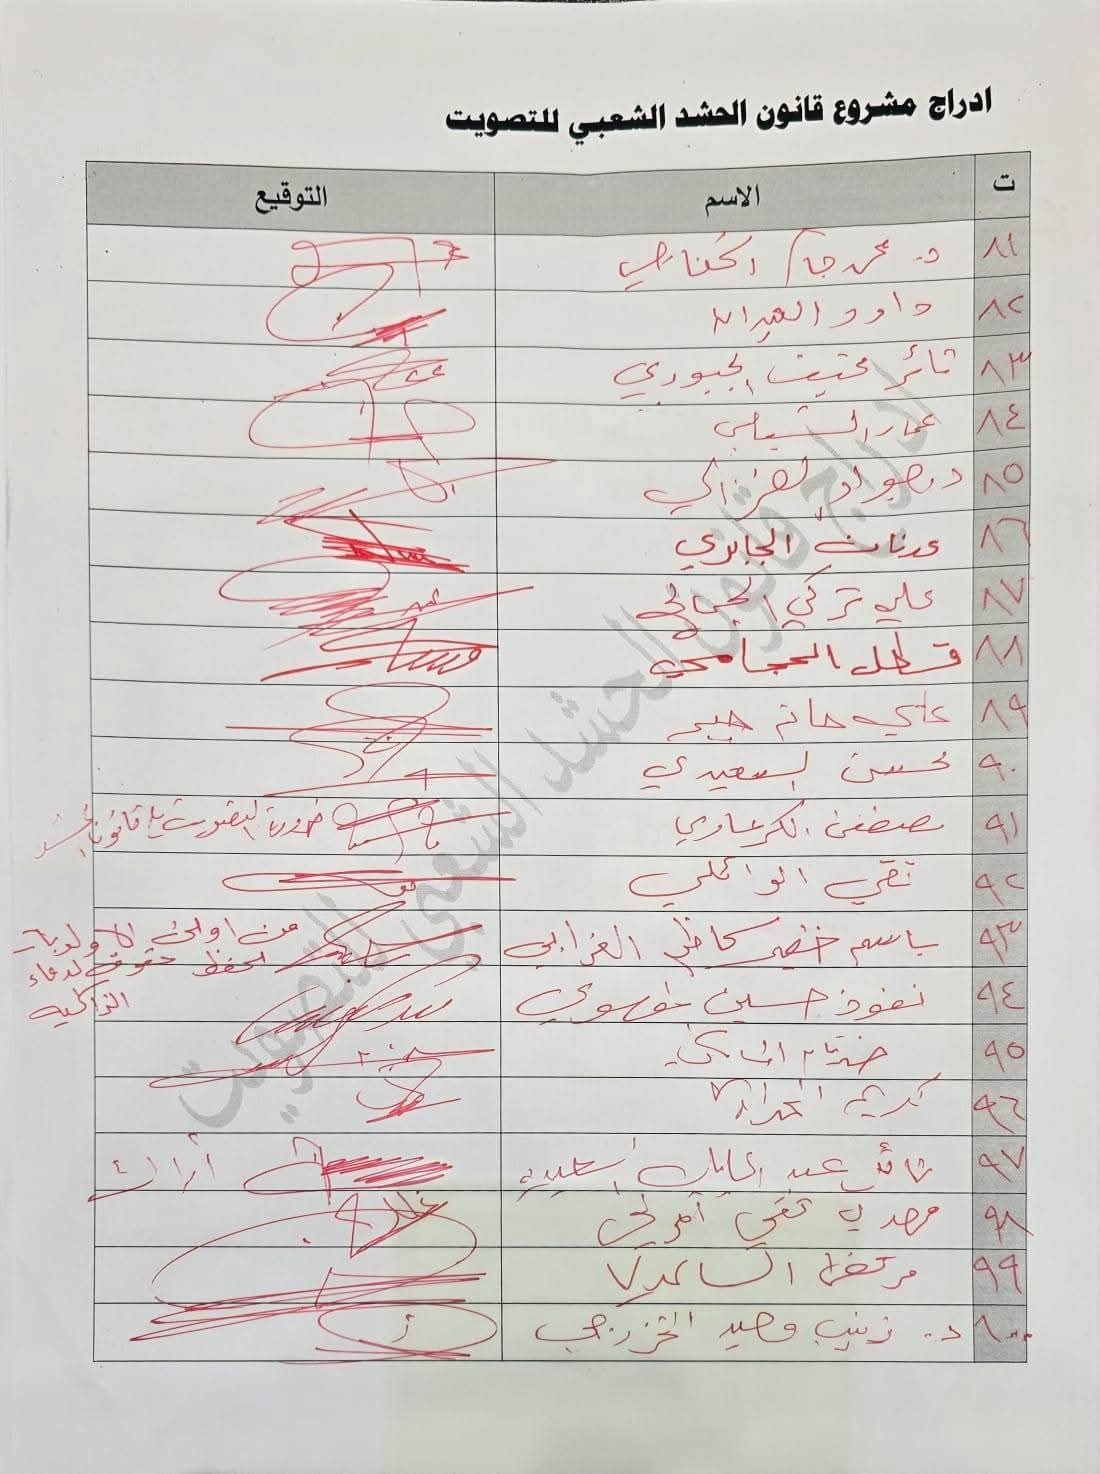 ادراج مشروع قانون الحشد الشعبي للتصويت
ت الاسم التوقيع
٨١ د. محمد جاسم الخفاجي
٨٢ داود العيدان
٨٣ ثائر مخيف الجبوري
٨٤ عمار الشبلي
٨٥ د. جواد الغزالي
٨٦ عدنان الجابري
٨٧ علي تركي الجمالي
٨٨ الحجامي
٨٩ علي حاتم
٩٠ محسن السعيدي
٩١ مصطفى الكرعاوي ضرورة التصويت قانون الحشد
٩٢ تقي الوائلي
٩٣ باسم خضير كاظم الغرابي من اولى الاولويات
لحفظ حقوق الدماء
الزاكية
٩٤ نفوذ حسين الموسوي
٩٥
٩٦ كريم
٩٧ عبد
٩٨ مهدي تقي آمرلي
٩٩ مرتضى الساعدي
١٠٠ د. زينب وحيد الخزرجي
ادراج قانون الحشد الشعبي للتصويت